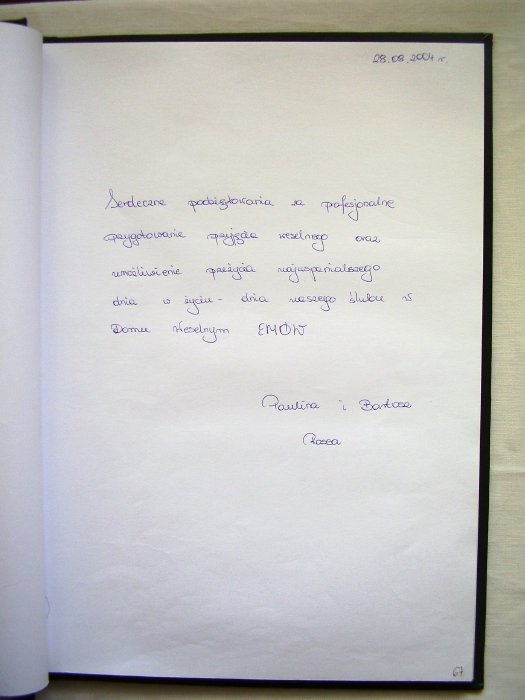 28.08.2004 r.
Serdeczne podziękowania za profesjonalne
przygotowanie przyjęcia weselnego oraz
umożliwienie przeżycia najwspanialszego
dnia w życiu - dnia naszego ślubu w
Domu Weselnym EMÓW
Paulina i Bartosz
67